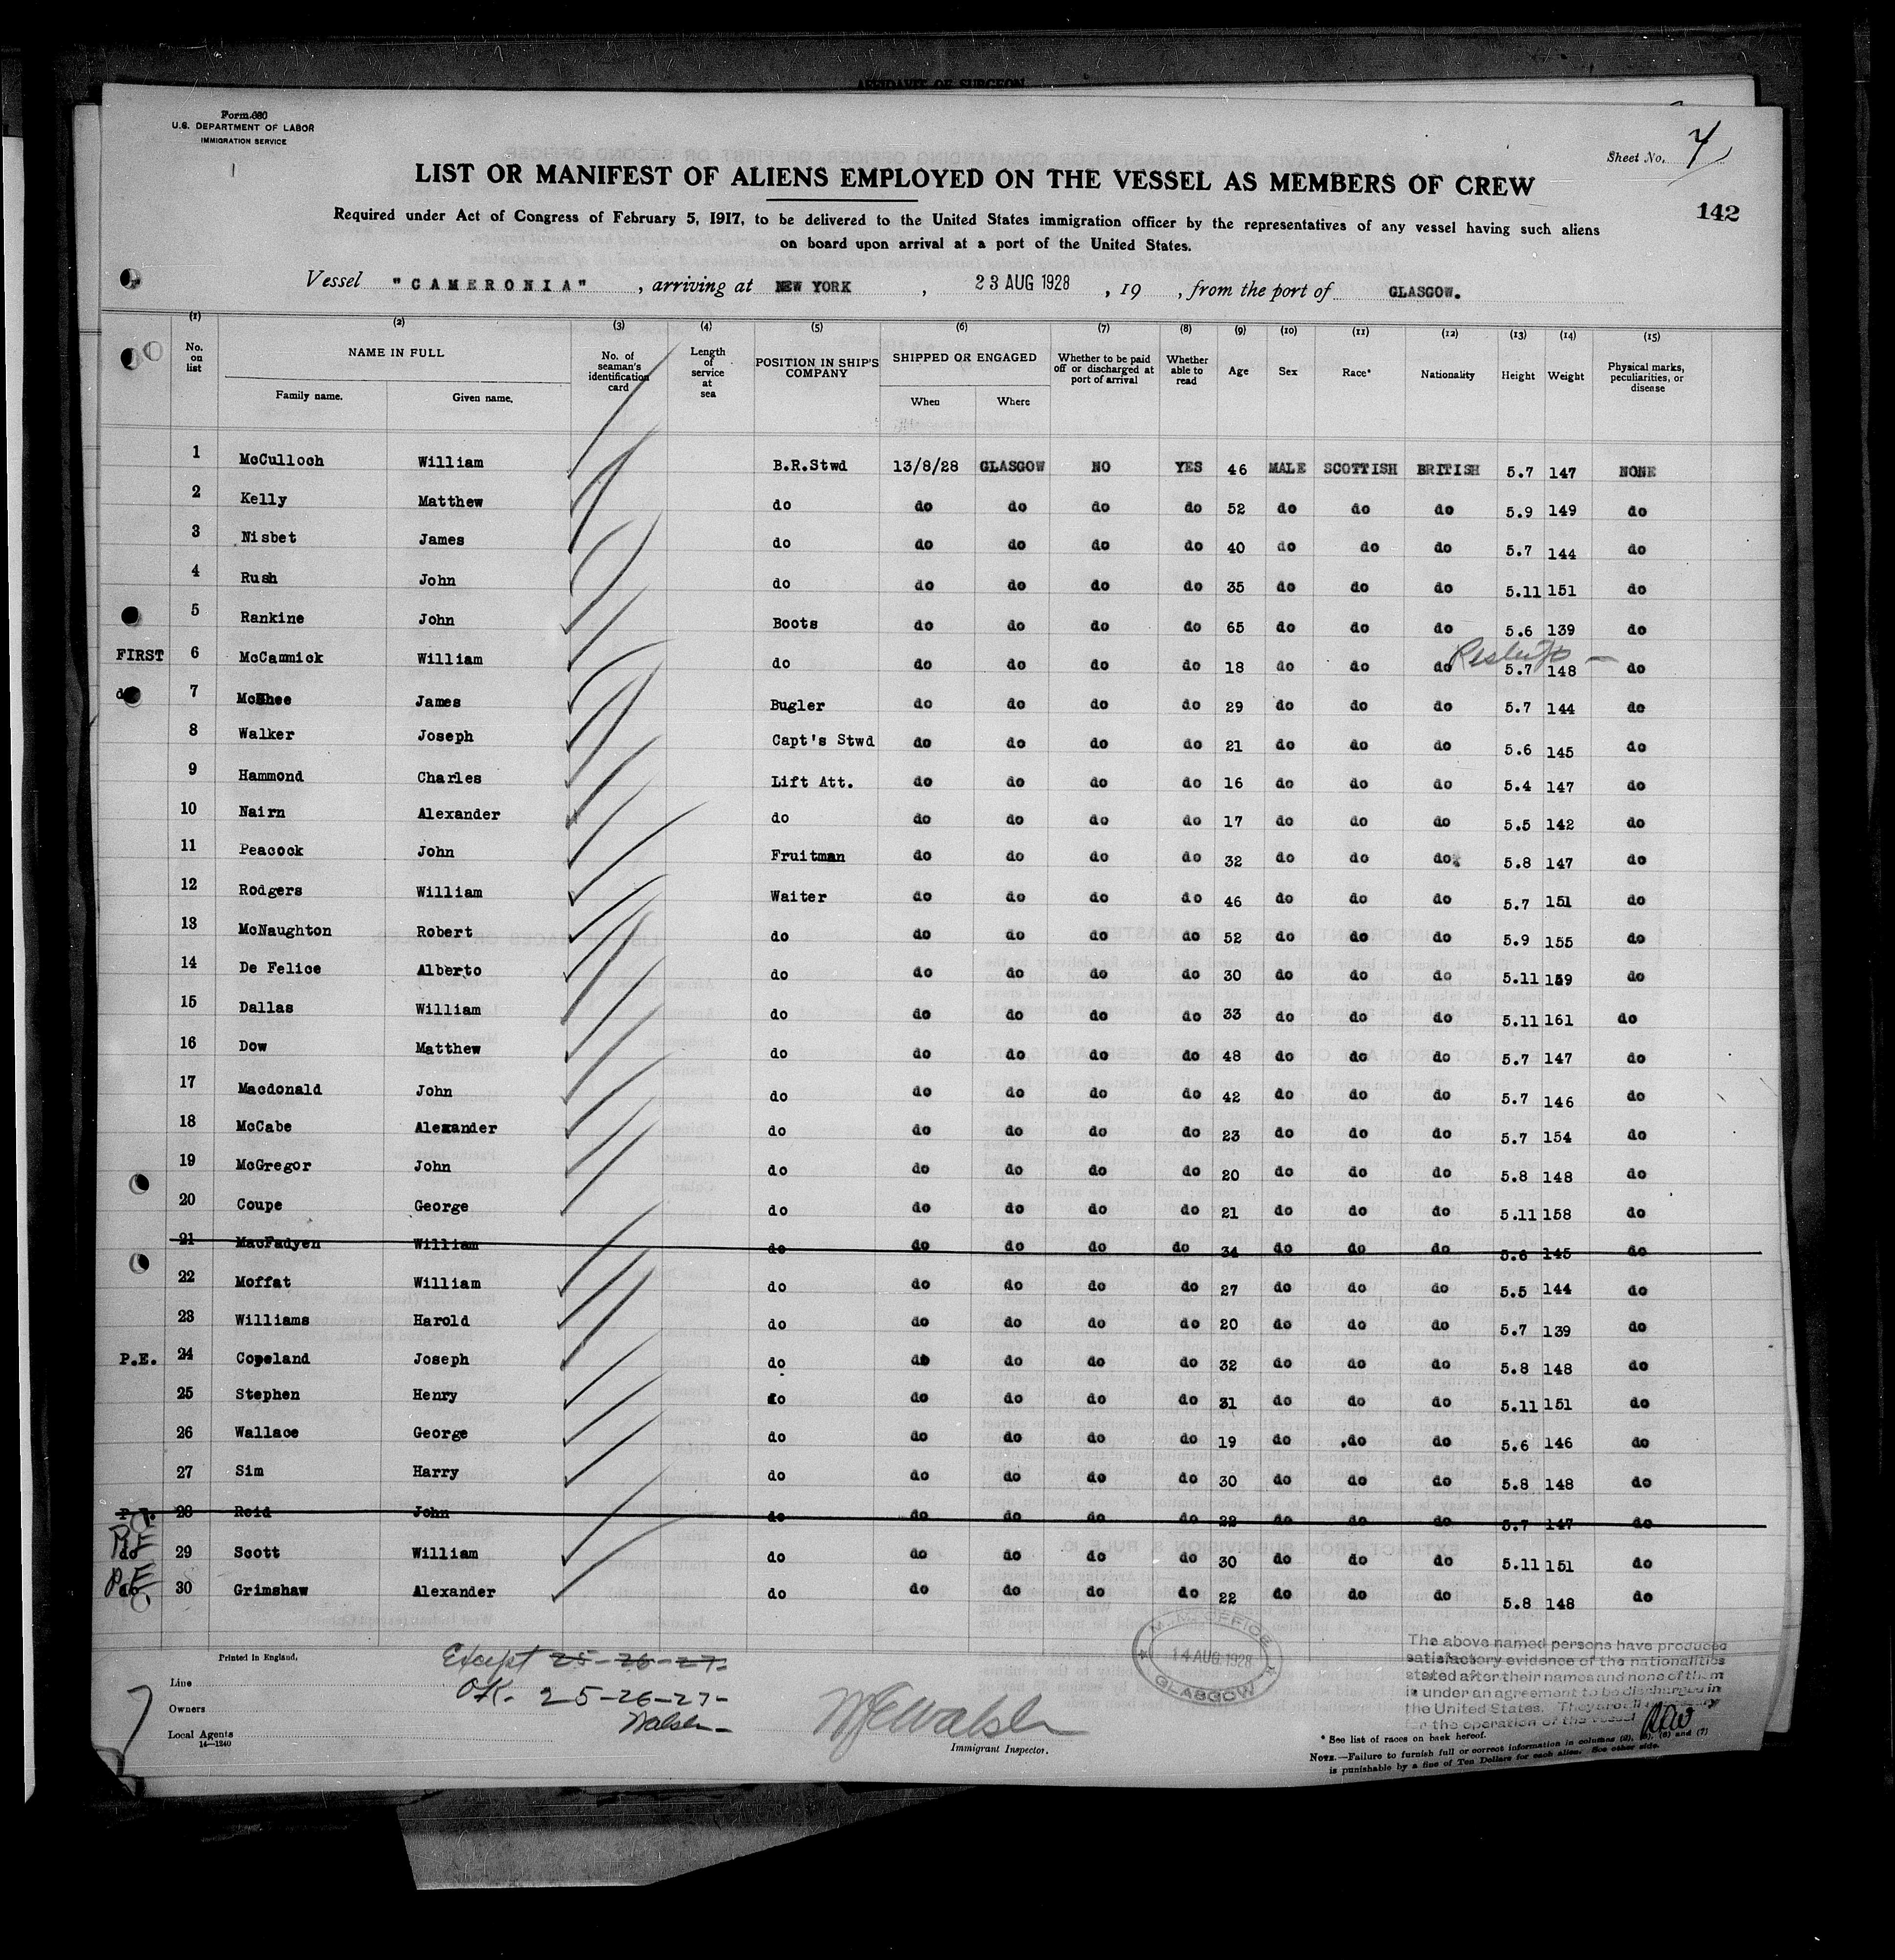 AFFIDAVIT OF SURGEON
Form 680
U.S. DEPARTMENT OF LABOR
IMMIGRATION SERVICE
Sheet No.
LIST OR MANIFEST OF ALIENS EMPLOYED ON THE VESSEL AS MEMBERS OF CREW
142
Required under Act of Congress of February 5, 1917, to be delivered to the United States immigration officer by the representatives of any vessel having such aliens
on board upon arrival at a port of the United States.
Vessel "CAMERONIA", arriving at NEW YORK, 23 AUG 1928, 19 , from the port of GLASGOW.
(1) (2) (3) (4) (5) (6) (7) (8) (9) (10) (11) (12) (13) (14) (15)
No. on list NAME IN FULL Family name. Given name. No. of seaman's identification card Length of service at sea POSITION IN SHIP'S COMPANY SHIPPED OR ENGAGED When Where Whether to be paid off or discharged at port of arrival Whether able to read Age Sex Race* Nationality Height Weight Physical marks, peculiarities, or disease
1 McCulloch William B.R.Stwd 13/8/28 GLASGOW NO YES 46 MALE SCOTTISH BRITISH 5.7 147 NONE
2 Kelly Matthew do do do do do 52 do do do 5.9 149 do
3 Nisbet James do do do do do 40 do do do 5.7 144 do
4 Rush John do do do do do 35 do do do 5.11 151 do
5 Rankine John Boots do do do do 65 do do do 5.6 139 do
FIRST 6 McCammick William do do do do do 18 do do do 5.7 148 do
do 7 McGhee James Bugler do do do do 29 do do do 5.7 144 do
8 Walker Joseph Capt's Stwd do do do do 21 do do do 5.6 145 do
9 Hammond Charles Lift Att. do do do do 16 do do do 5.4 147 do
10 Nairn Alexander do do do do do 17 do do do 5.5 142 do
11 Peacock John Fruitman do do do do 32 do do do 5.8 147 do
12 Rodgers William Waiter do do do do 46 do do do 5.7 151 do
13 McNaughton Robert do do do do do 52 do do do 5.9 155 do
14 De Felice Alberto do do do do do 30 do do do 5.11 159 do
15 Dallas William do do do do do 33 do do do 5.11 161 do
16 Dow Matthew do do do do do 48 do do do 5.7 147 do
17 Macdonald John do do do do do 42 do do do 5.7 146 do
18 McCabe Alexander do do do do do 23 do do do 5.7 154 do
19 McGregor John do do do do do 20 do do do 5.8 148 do
20 Coupe George do do do do do 21 do do do 5.11 158 do
21 MacFadyen William do do do do do 34 do do do 5.6 145 do
22 Moffat William do do do do do 27 do do do 5.5 144 do
23 Williams Harold do do do do do 20 do do do 5.7 139 do
P.E. 24 Copeland Joseph do do do do do 32 do do do 5.8 148 do
25 Stephen Henry do do do do do 31 do do do 5.11 151 do
26 Wallace George do do do do do 19 do do do 5.6 146 do
27 Sim Harry do do do do do 30 do do do 5.8 148 do
28 Reid John do do do do do 28 do do do 5.7 147 do
PE do 29 Scott William do do do do do 30 do do do 5.11 151 do
PE do 30 Grimshaw Alexander do do do do do 22 do do do 5.8 148 do
Printed in England.
Except 25-26-27.
OK. 25-26-27-
Walsh-
Line
Owners
Local Agents
14—1240
Walsh
Immigrant Inspector.
M.K. OFFICE K
14 AUG 1928
GLASGOW
The above named persons have produced
satisfactory evidence of the nationalities
stated after their names and none of them
is under an agreement to be discharged in
the United States. They are all necessary
for the operation of the vessel
* See list of races on back hereof.
NOTE.—Failure to furnish full or correct information in columns (2), (5), (6) and (7)
is punishable by a fine of Ten Dollars for each alien. See other side.